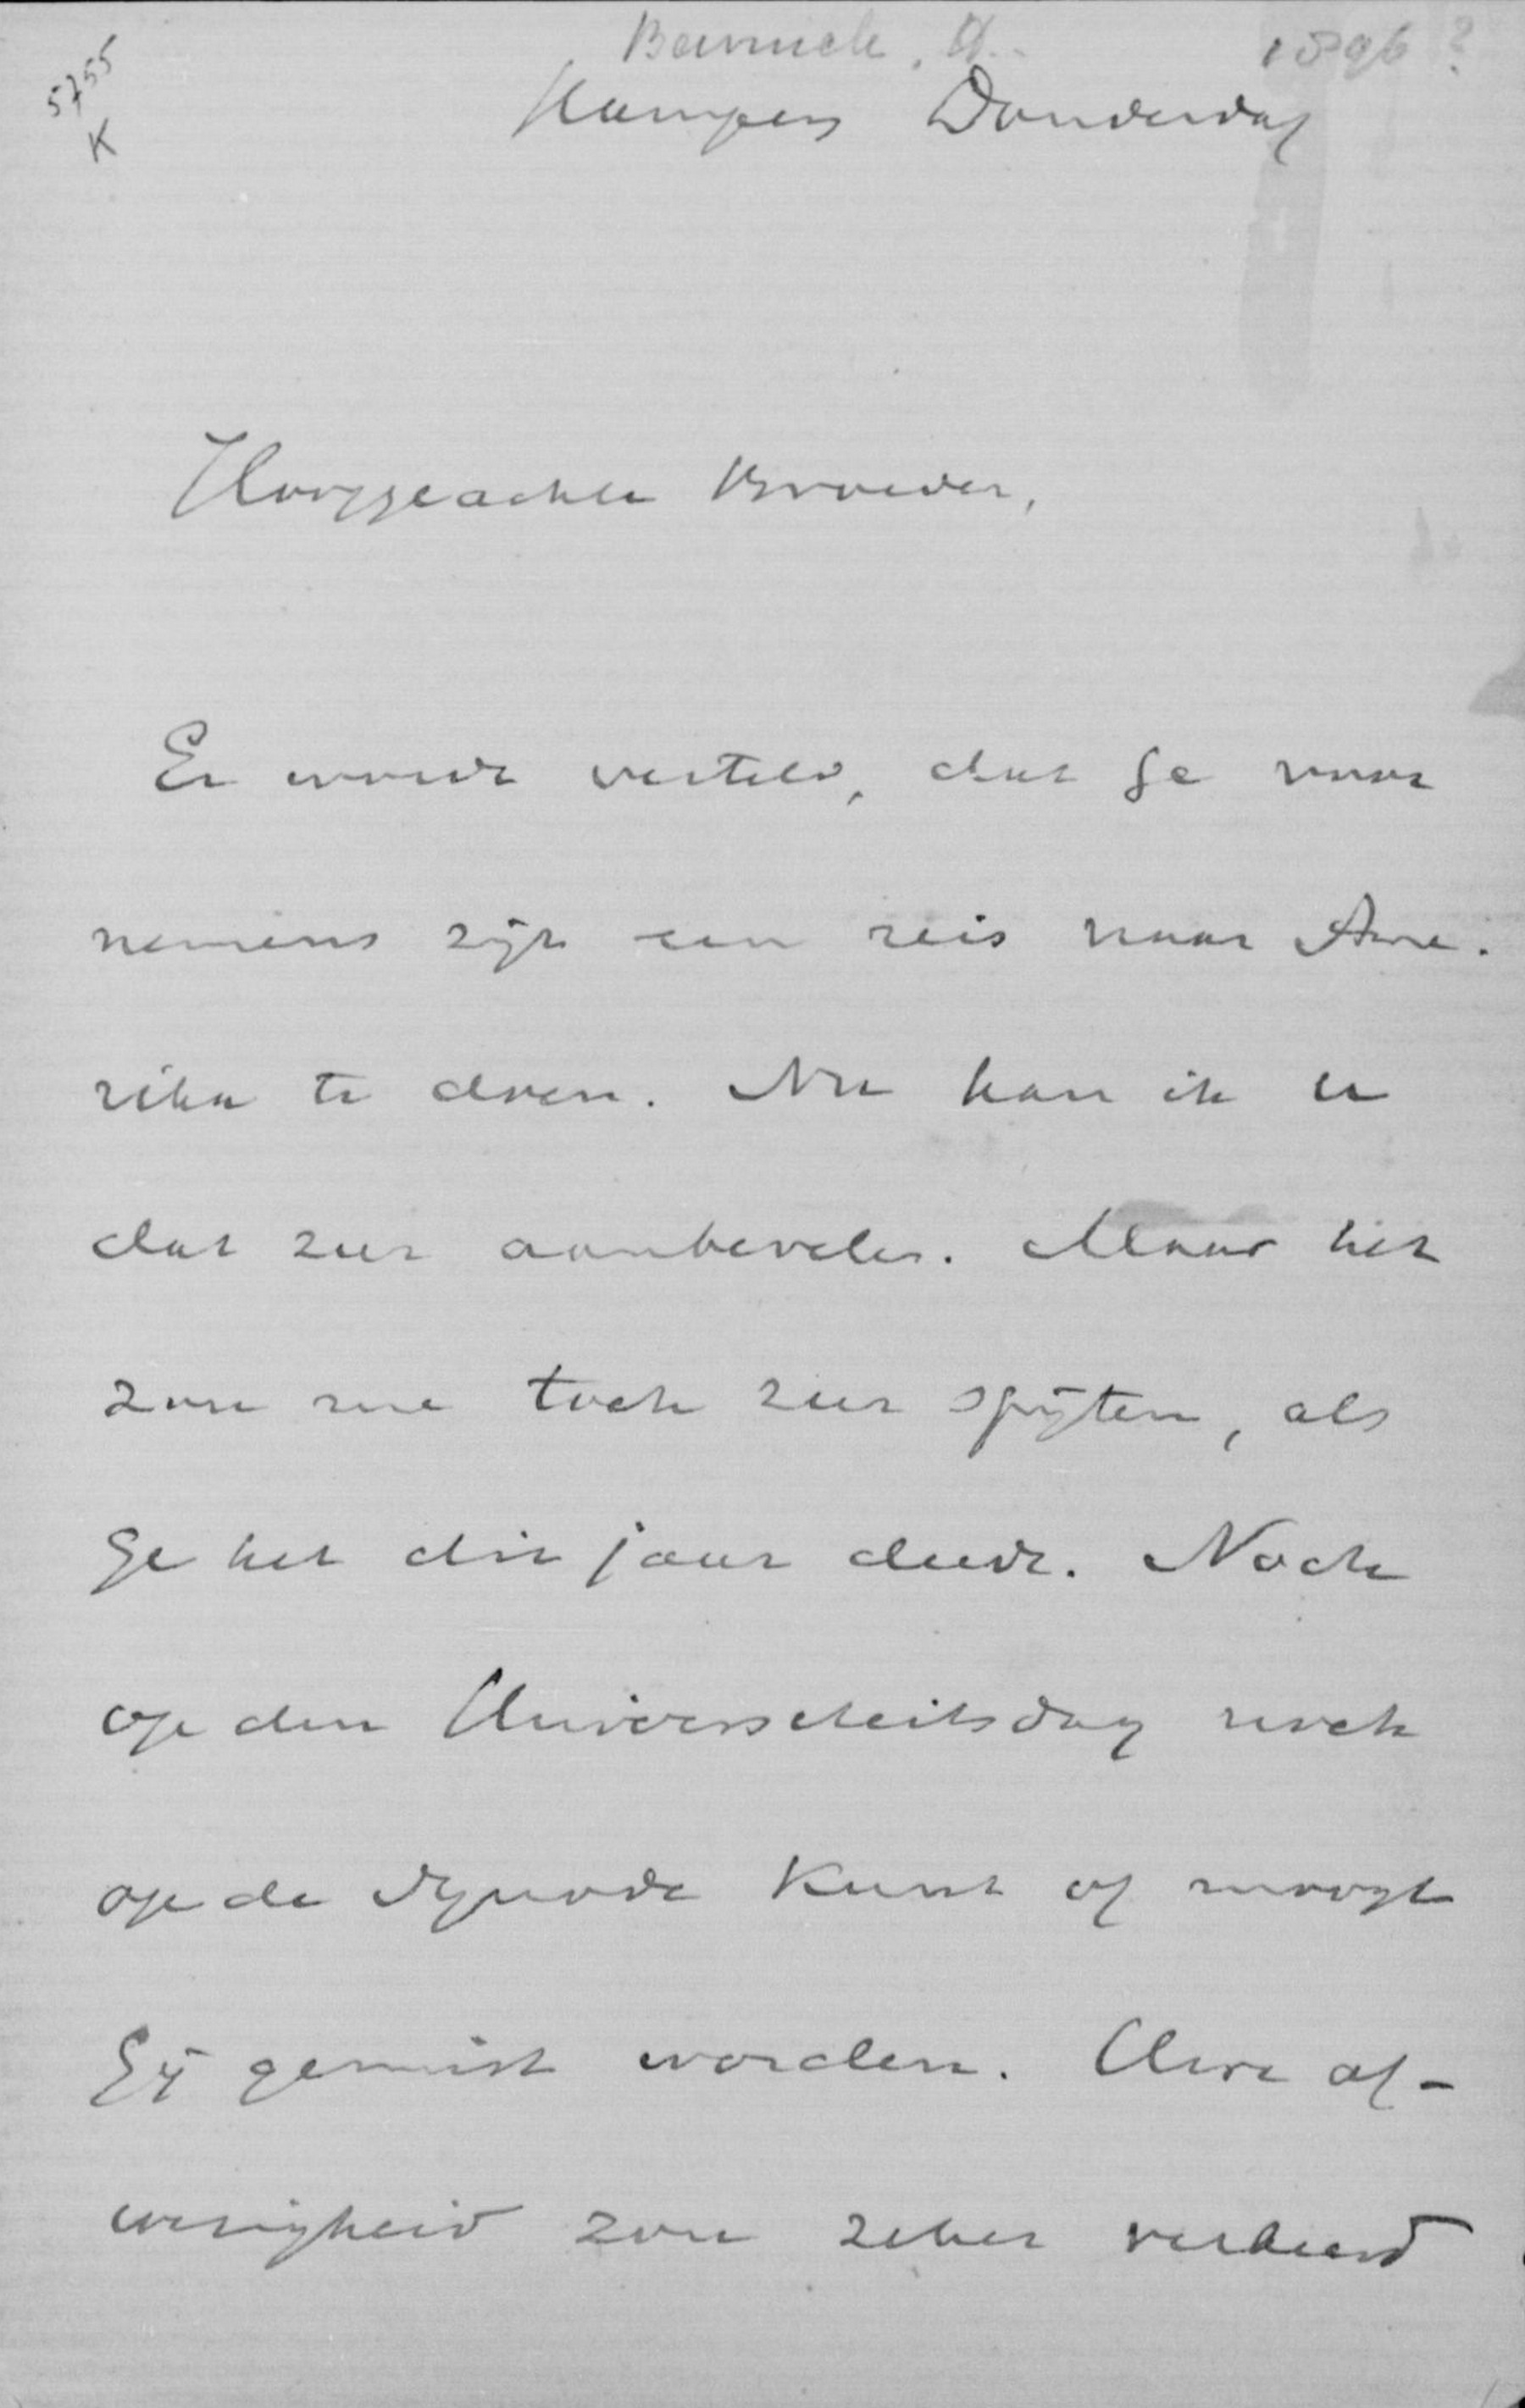 5755
K
Bavinck, H.
1896?
Kampen Donderdag
Hooggeachte Broeder,
Er wordt verteld, dat Ge voor
nemens zijt een reis naar Ame-
rika te doen. Nu kan ik U
dat zeer aanbevelen. Maar het
zou me toch zeer spijten, als
Ge het dit jaar deedt. Noch
op den Universiteitsdag noch
op de Synode kunt of moogt
Gij gemist worden. Uwe af-
wezigheid zou zeker verkeerd